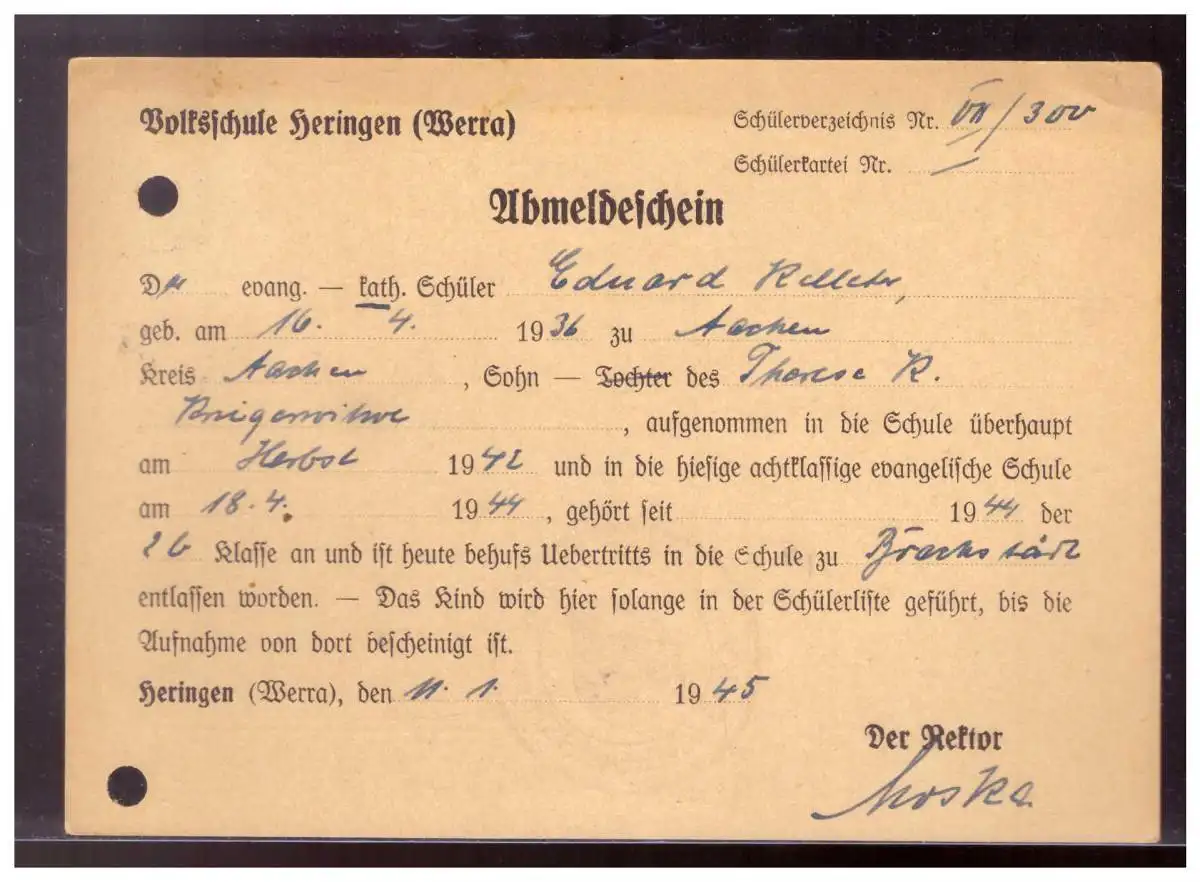 Volksschule Heringen (Werra)
Schülerverzeichnis Nr. VII/300
Schülerkartei Nr. —
Abmeldeschein
Der evang. — kath. Schüler Eduard Kelleter,
geb. am 16. 4. 1936 zu Aachen
Kreis Aachen, Sohn — Tochter des Therese K.
Kriegerwitwe, aufgenommen in die Schule überhaupt
am Herbst 1942 und in die hiesige achtklassige evangelische Schule
am 18.4. 1944, gehört seit 1944 der
2b Klasse an und ist heute behufs Uebertritts in die Schule zu
entlassen worden. — Das Kind wird hier solange in der Schülerliste geführt, bis die
Aufnahme von dort bescheinigt ist.
Heringen (Werra), den 11. 1. 1945
Der Rektor